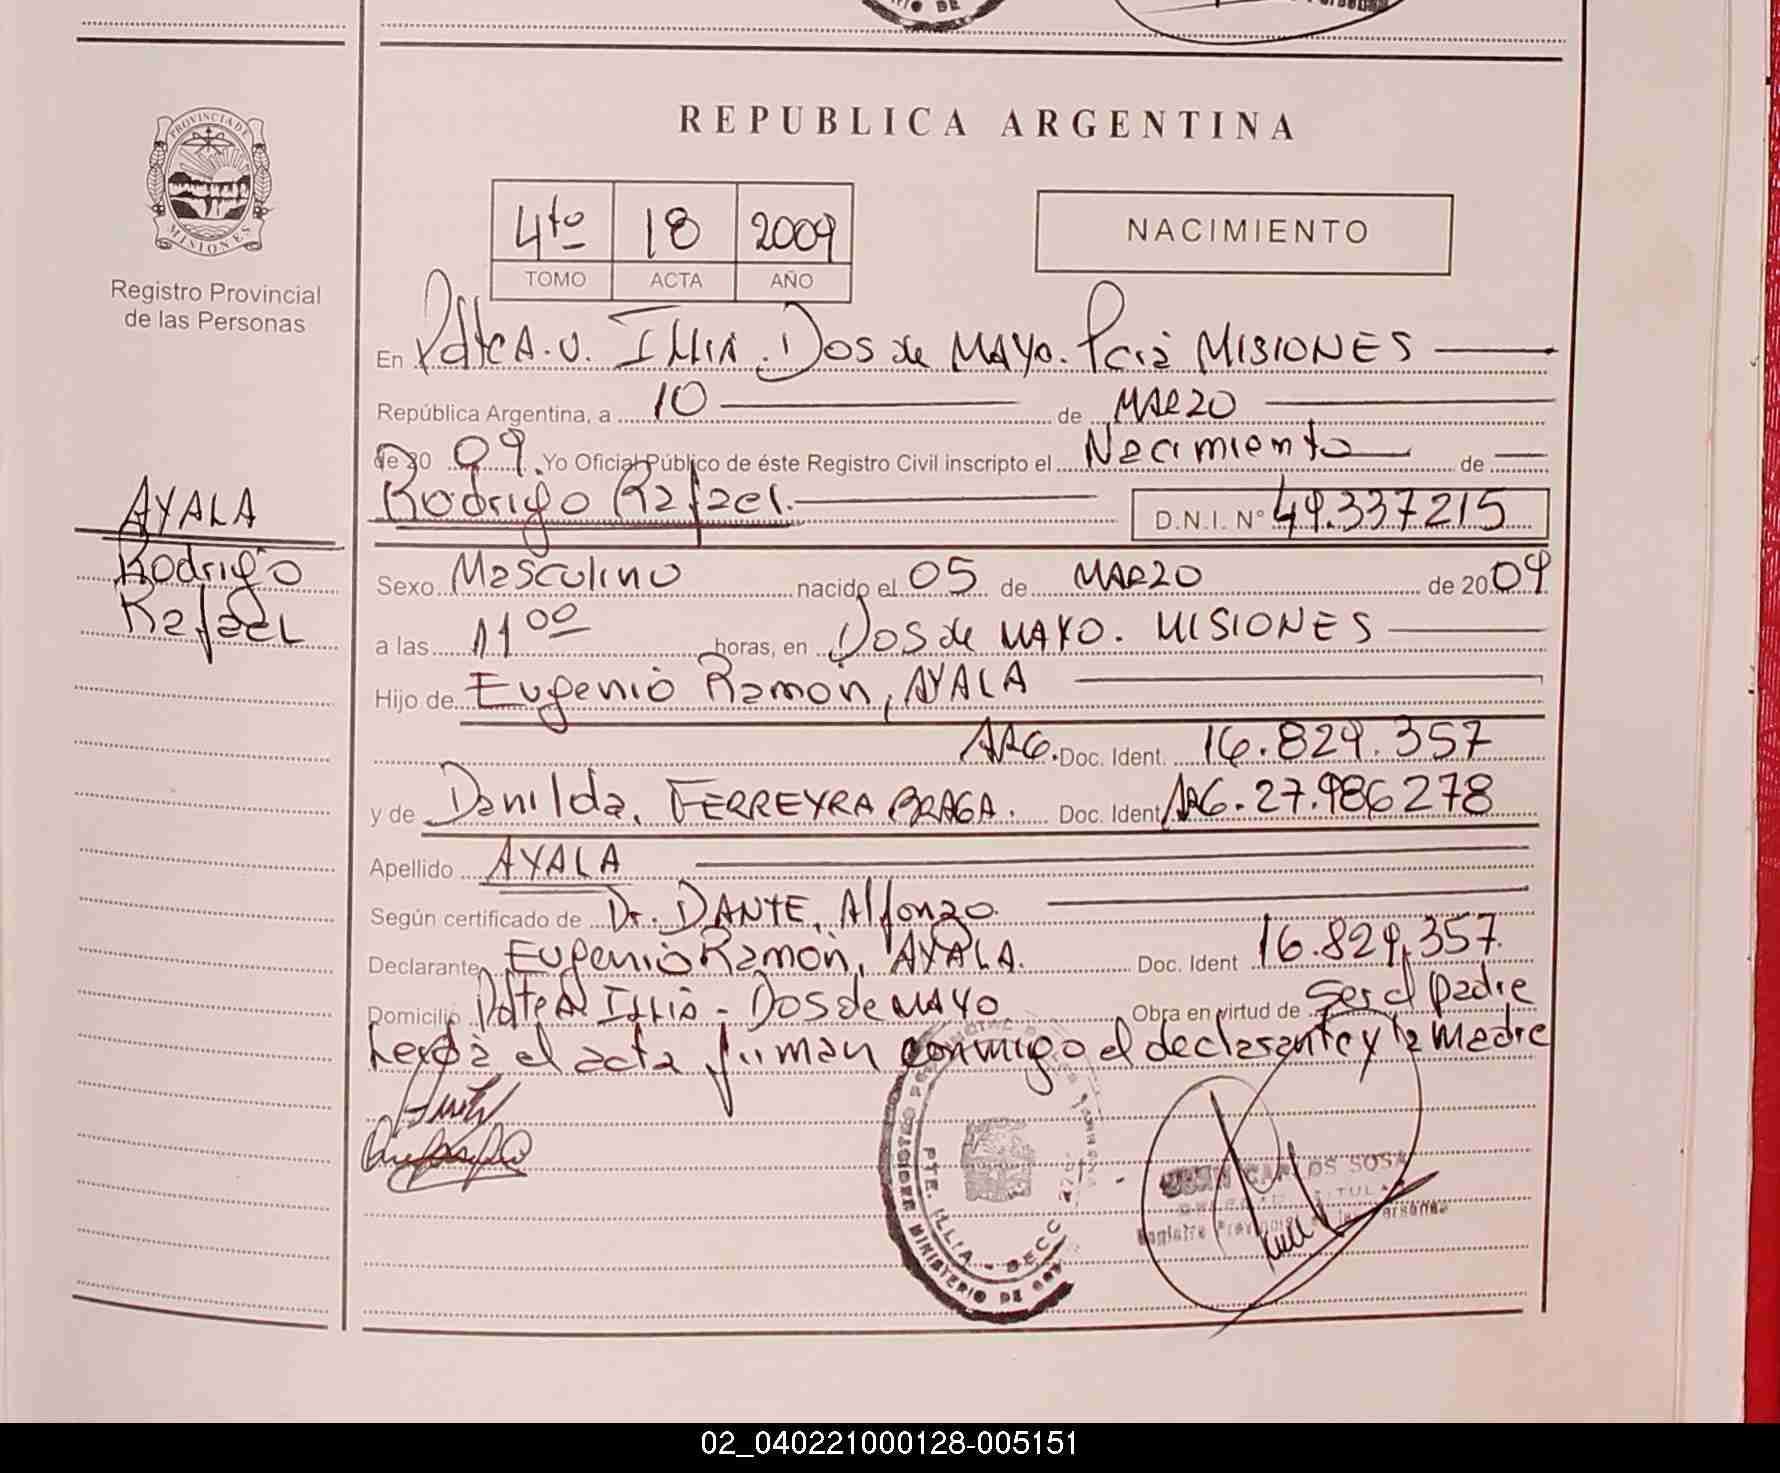 REPUBLICA ARGENTINA
PROVINCIA DE MISIONES
Registro Provincial
de las Personas
4to 18 2009
TOMO ACTA AÑO
NACIMIENTO
En Pdte A. U. Illia. Dos de MAYO. Pcia MISIONES
República Argentina, a 10 de MARZO
de 20 09 Yo Oficial Público de éste Registro Civil inscripto el Nacimiento de
Rodrigo Rafael. D.N.I. N° 49.337215
AYALA
Rodrigo
Rafael
Sexo Masculino nacido el 05 de MARZO de 20 09
a las 11 00 horas, en Dos de MAYO. MISIONES
Hijo de Eugenio Ramón, AYALA
ARG. Doc. Ident. 16.829.357
y de Danilda, FERREYRA BRAGA. Doc. Ident ARG. 27.986278
Apellido AYALA
Según certificado de Dr. DANTE, Alfonzo
Declarante Eugenio Ramón, AYALA. Doc. Ident 16.829.357
Domicilio Pdte A Illia - Dos de MAYO Obra en virtud de Ser el padre
Leída el acta firman conmigo el declarante y la madre
PTE. ILLIA - SECC
MINISTERIO DE
JUAN CARLOS SOSA
TITULAR
Registro Provincial de las Personas
02_040221000128-005151